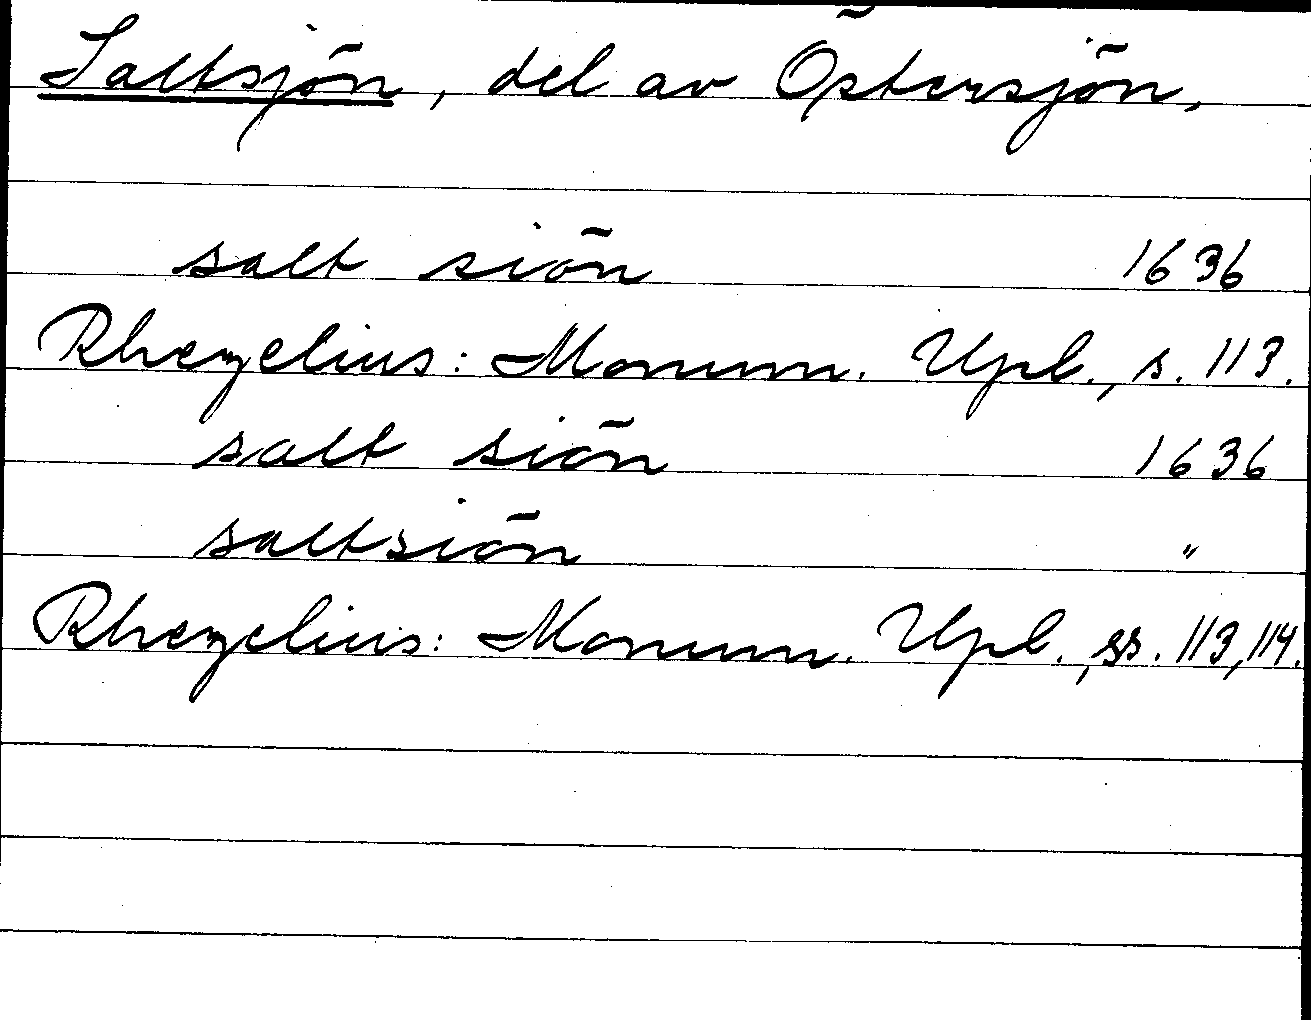 Saltsjön, del av Östersjön,
salt siön 1636
Rhezelius: Monum. Upl., s. 113.
salt siön 1636
saltsiön "
Rhezelius: Monum. Upl., ss. 113, 114.